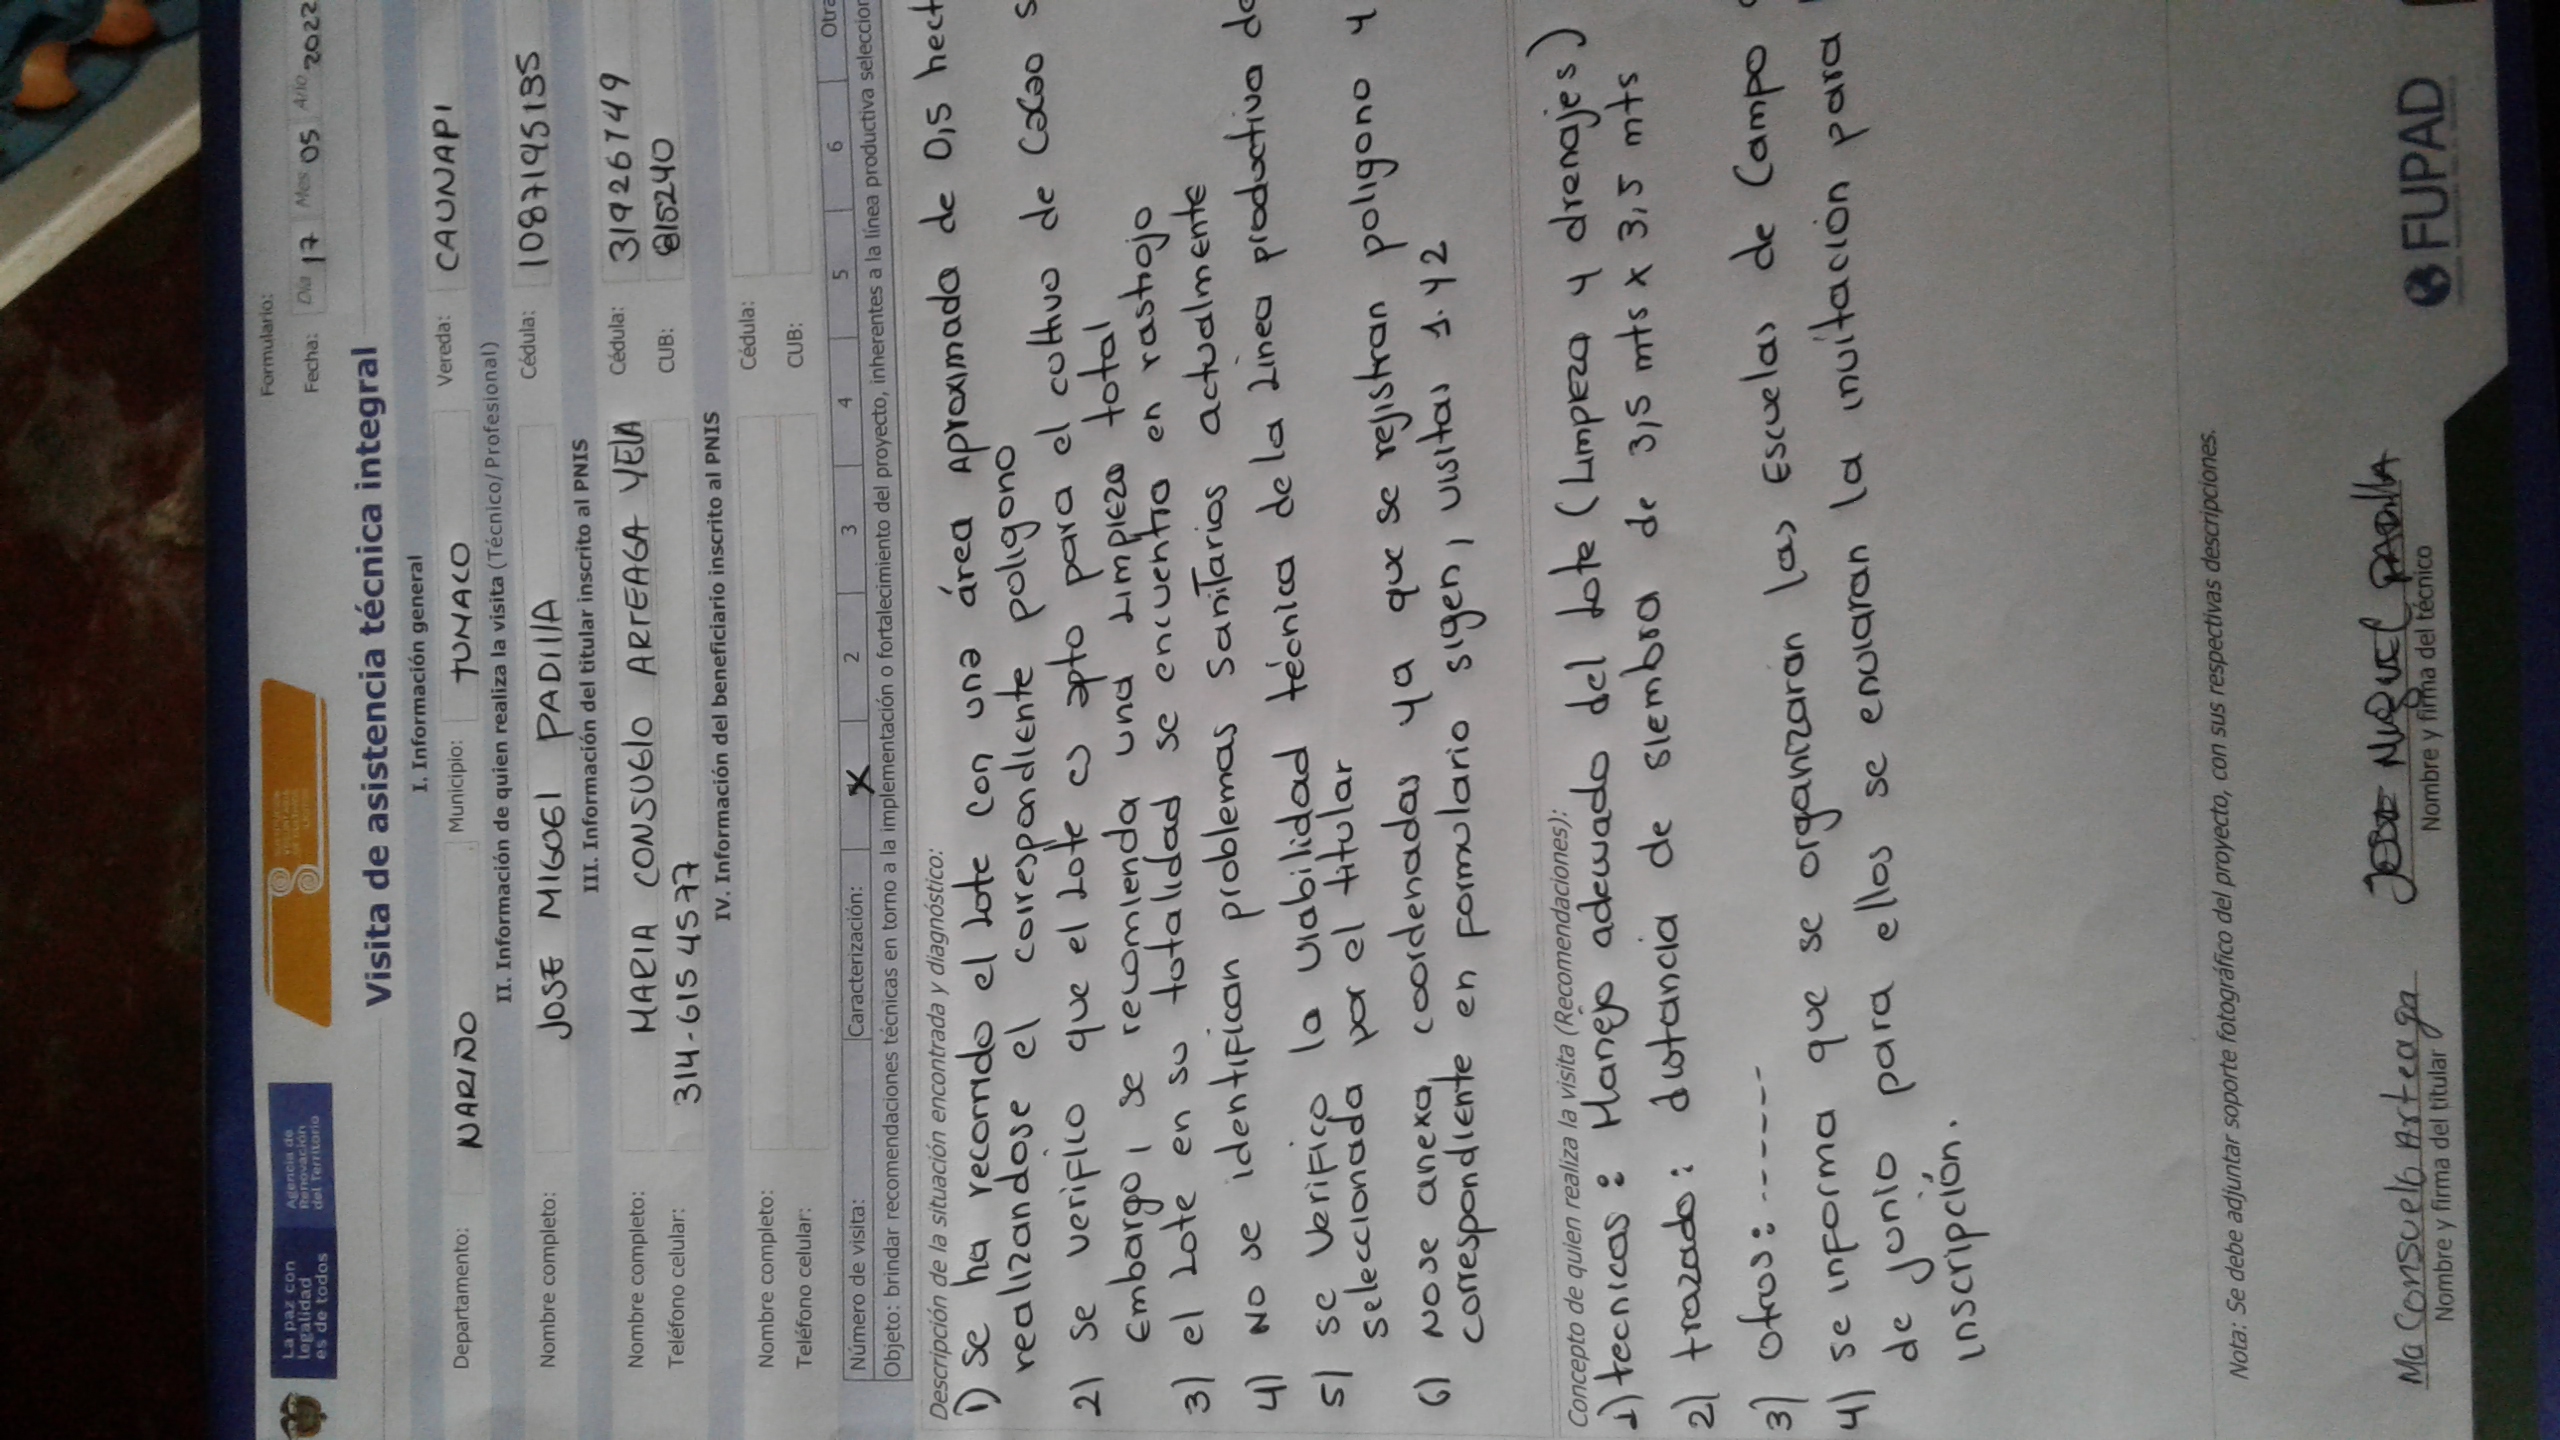 La paz con
legalidad
es de todos
Agencia de
Renovación
del Territorio
Formulario:
Fecha: Día 17 Mes 05 Año 2022
Visita de asistencia técnica integral
I. Información general
Departamento: NARIÑO Municipio: TUMACO Vereda: CAUNAPI
II. Información de quien realiza la visita (Técnico/Profesional)
Nombre completo: JOSE MIGUEl PADIllA Cédula: 1087195135
III. Información del titular inscrito al PNIS
Nombre completo: MARIA CONSUElO ARTEAGA YELA Cédula: 31926749
Teléfono celular: 314-615 4577 CUB: 815240
IV. Información del beneficiario inscrito al PNIS
Nombre completo: Cédula:
Teléfono celular: CUB:
Número de visita: Caracterización: X 2 3 4 5 6 Otra
Objeto: brindar recomendaciones técnicas en torno a la implementación o fortalecimiento del proyecto, inherentes a la línea productiva seleccion
Descripción de la situación encontrada y diagnóstico:
1) Se ha recorrido el Lote con una área aproximada de 0,5 hect
realizandose el correspondiente poligono
2) se verifico que el Lote es apto para el cultivo de Cacao s
Embargo, se recomienda una Limpieza total
3) el Lote en su totalidad se encuentra en rastrojo
4) No se identifican problemas sanitarios actualmente
5) se verifico la viabilidad técnica de la Linea productiva de
seleccionada por el titular
6) No se anexa coordenadas ya que se rejistran poligono y
correspondiente en formulario sigen, visitas 1 y 2
Concepto de quien realiza la visita (Recomendaciones):
1) tecnicas: Manejo adecuado del Lote (Limpieza y drenajes)
2) trazado: distancia de siembra de 3,5 mts x 3,5 mts
3) otros: ------
4) se informa que se organizaran las Escuelas de Campo
de junio para ellos se enviaran la invitacion para
inscripción.
Nota: Se debe adjuntar soporte fotográfico del proyecto, con sus respectivas descripciones.
Ma Consuelo Arteaga
Nombre y firma del titular
JOSE MIGUEL PADIllA
Nombre y firma del técnico
FUPAD